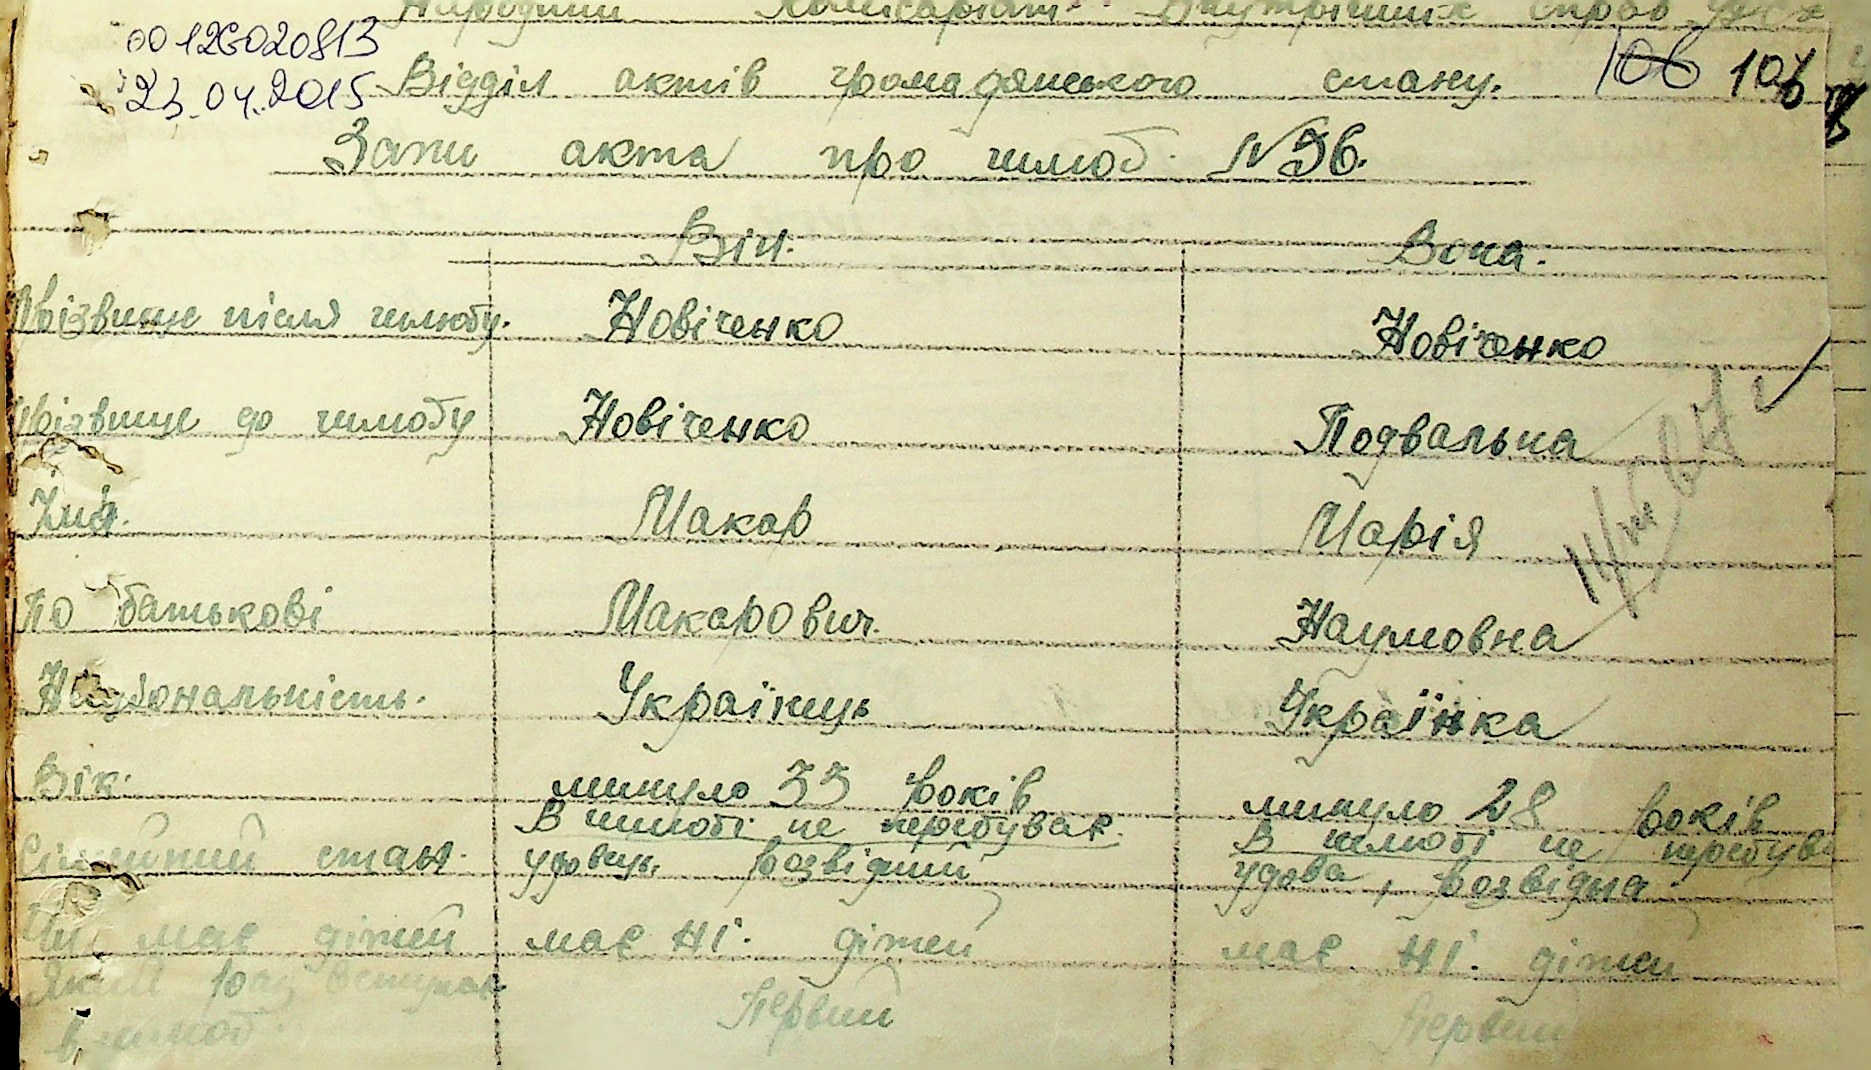 Народний Комісаріат Внутрішніх справ УРСР
00126020813
23.04.2015
Відділ актів громадянського стану.
106 106
Запи акта про шлюб. N 36.
Він. Вона.
Прізвище після шлюбу. Новіченко Новіченко
Прізвище до шлюбу Новіченко Подвальна
Імя. Макар Марія
По батькові Макарович. Наумовна
Національність. Українець Українка
Вік. минуло 33 років минуло 28 років
Сімейний стан. В шлюбі не перебуває. В шлюбі не перебув
удовец, розвідний удова, розвідна
Чи має дітей має ні. дітей має ні. дітей
Який раз вступає Первий Первий
в шлюб.